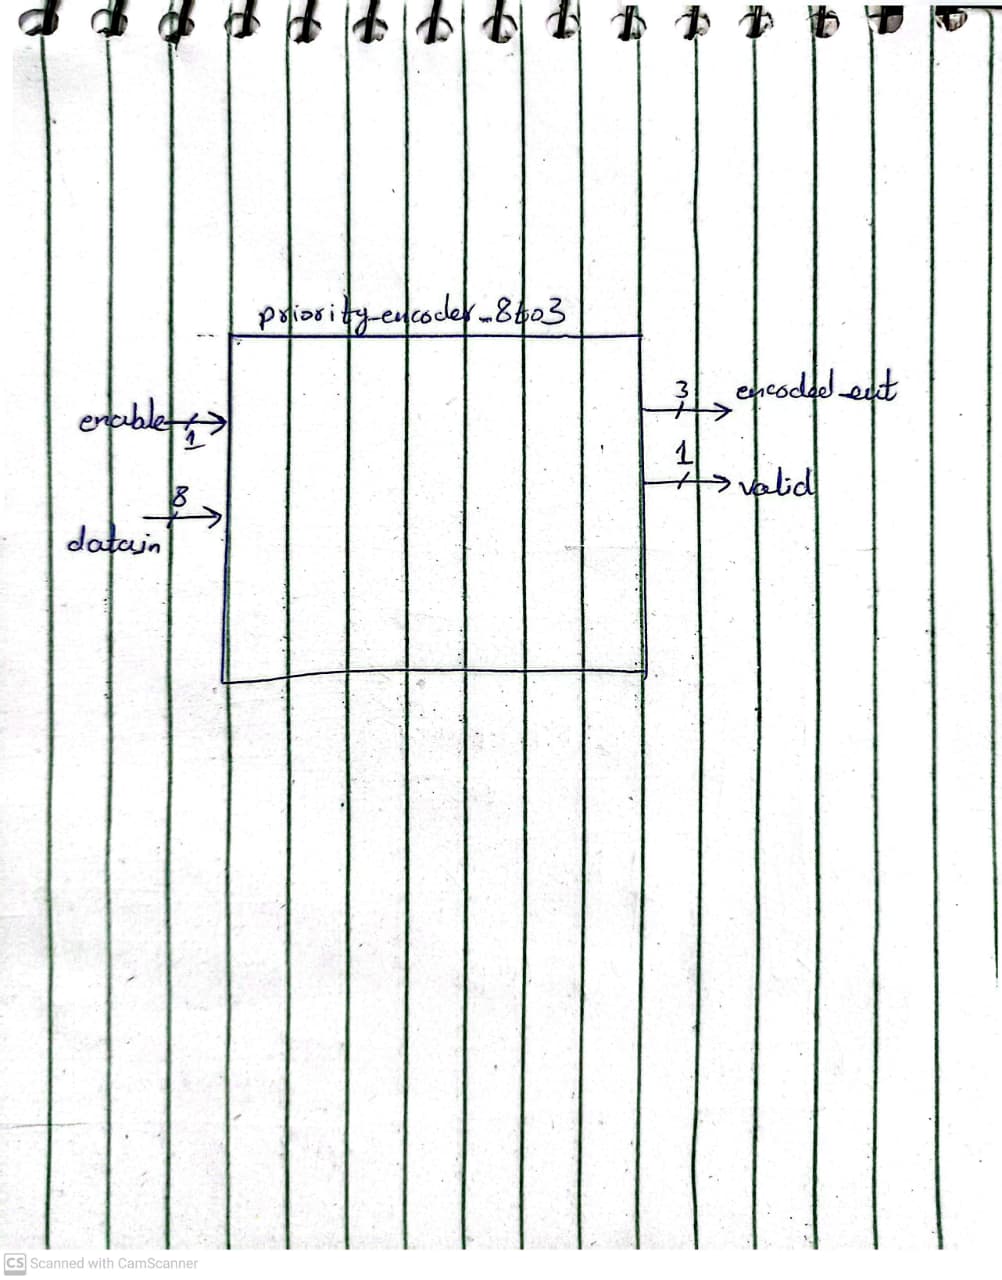 priority_encoder_8to3
enable
1
8
data_in
3
encoded_out
1
valid
CS Scanned with CamScanner